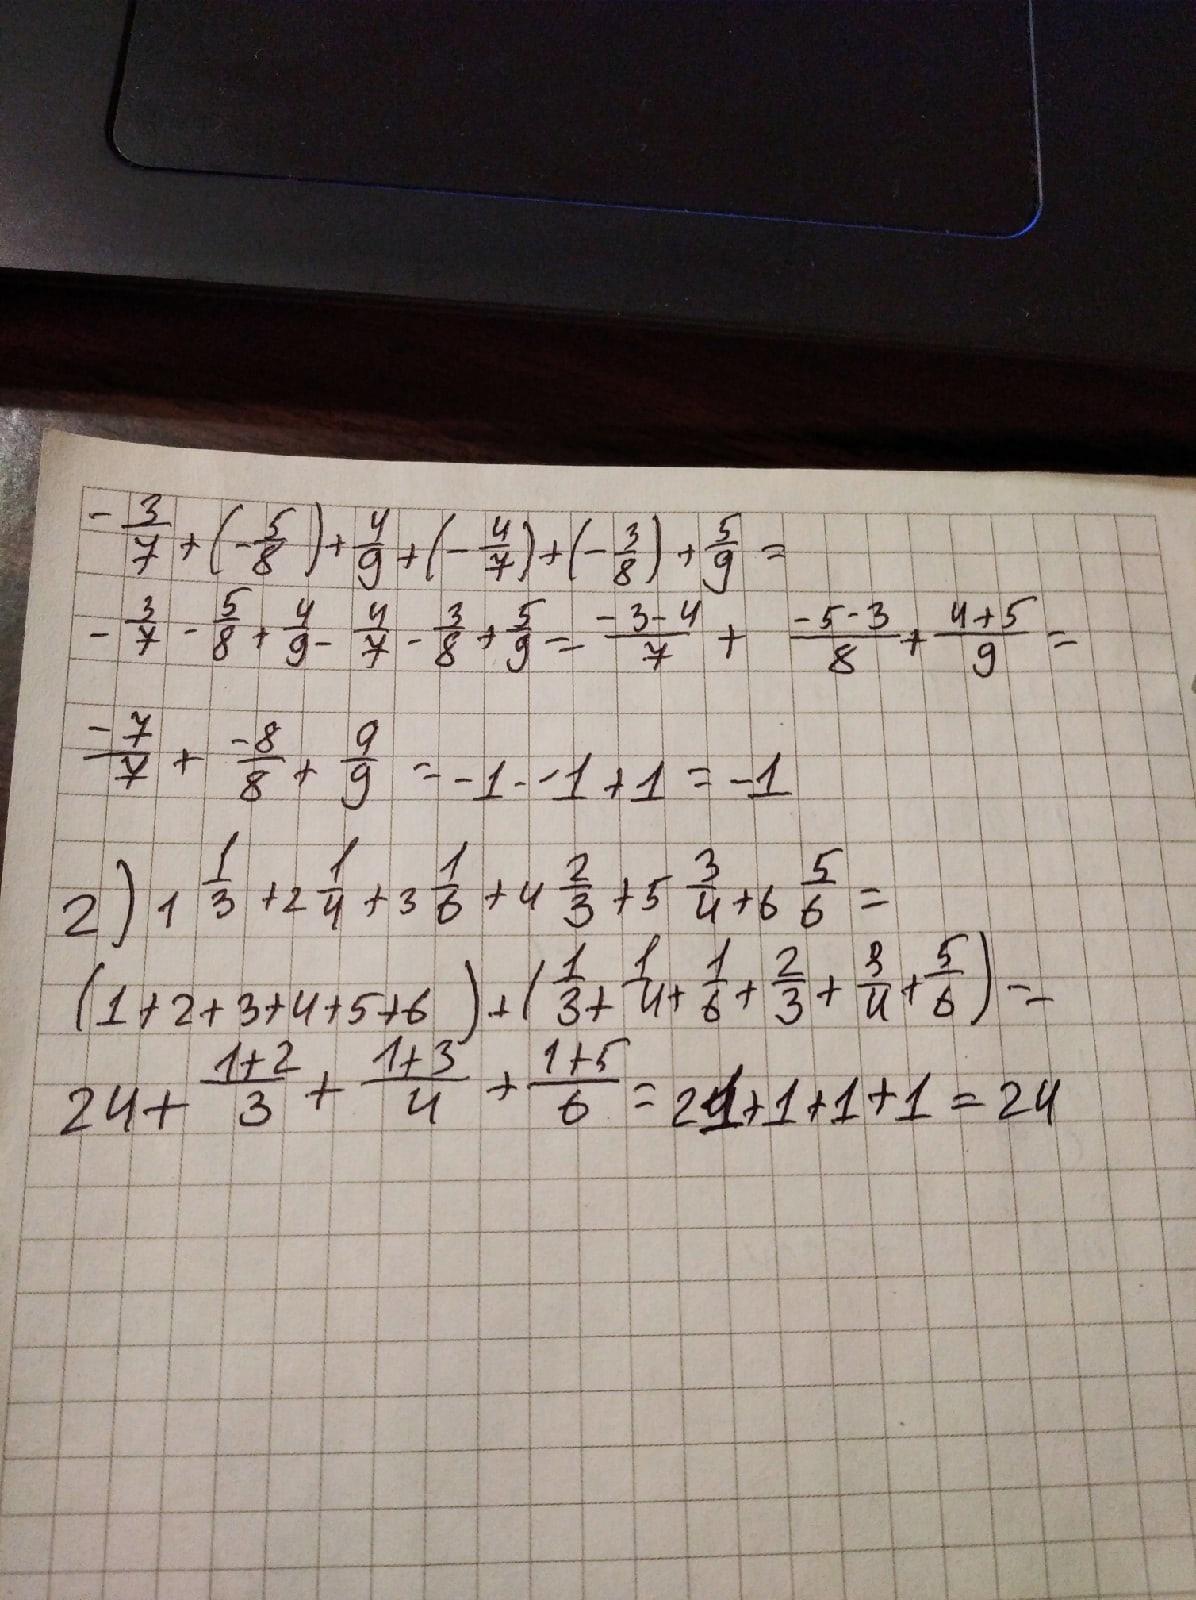 - 3/7 + (- 5/8) + 4/9 + (- 4/7) + (- 3/8) + 5/9 =
- 3/7 - 5/8 + 4/9 - 4/7 - 3/8 + 5/9 = (-3-4)/7 + (-5-3)/8 + (4+5)/9 =
-7/7 + -8/8 + 9/9 = -1 - -1 + 1 = -1
2) 1 1/3 + 2 1/4 + 3 1/6 + 4 2/3 + 5 3/4 + 6 5/6 =
(1+2+3+4+5+6) + (1/3 + 1/4 + 1/6 + 2/3 + 3/4 + 5/6) =
24 + (1+2)/3 + (1+3)/4 + (1+5)/6 = 21+1+1+1 = 24